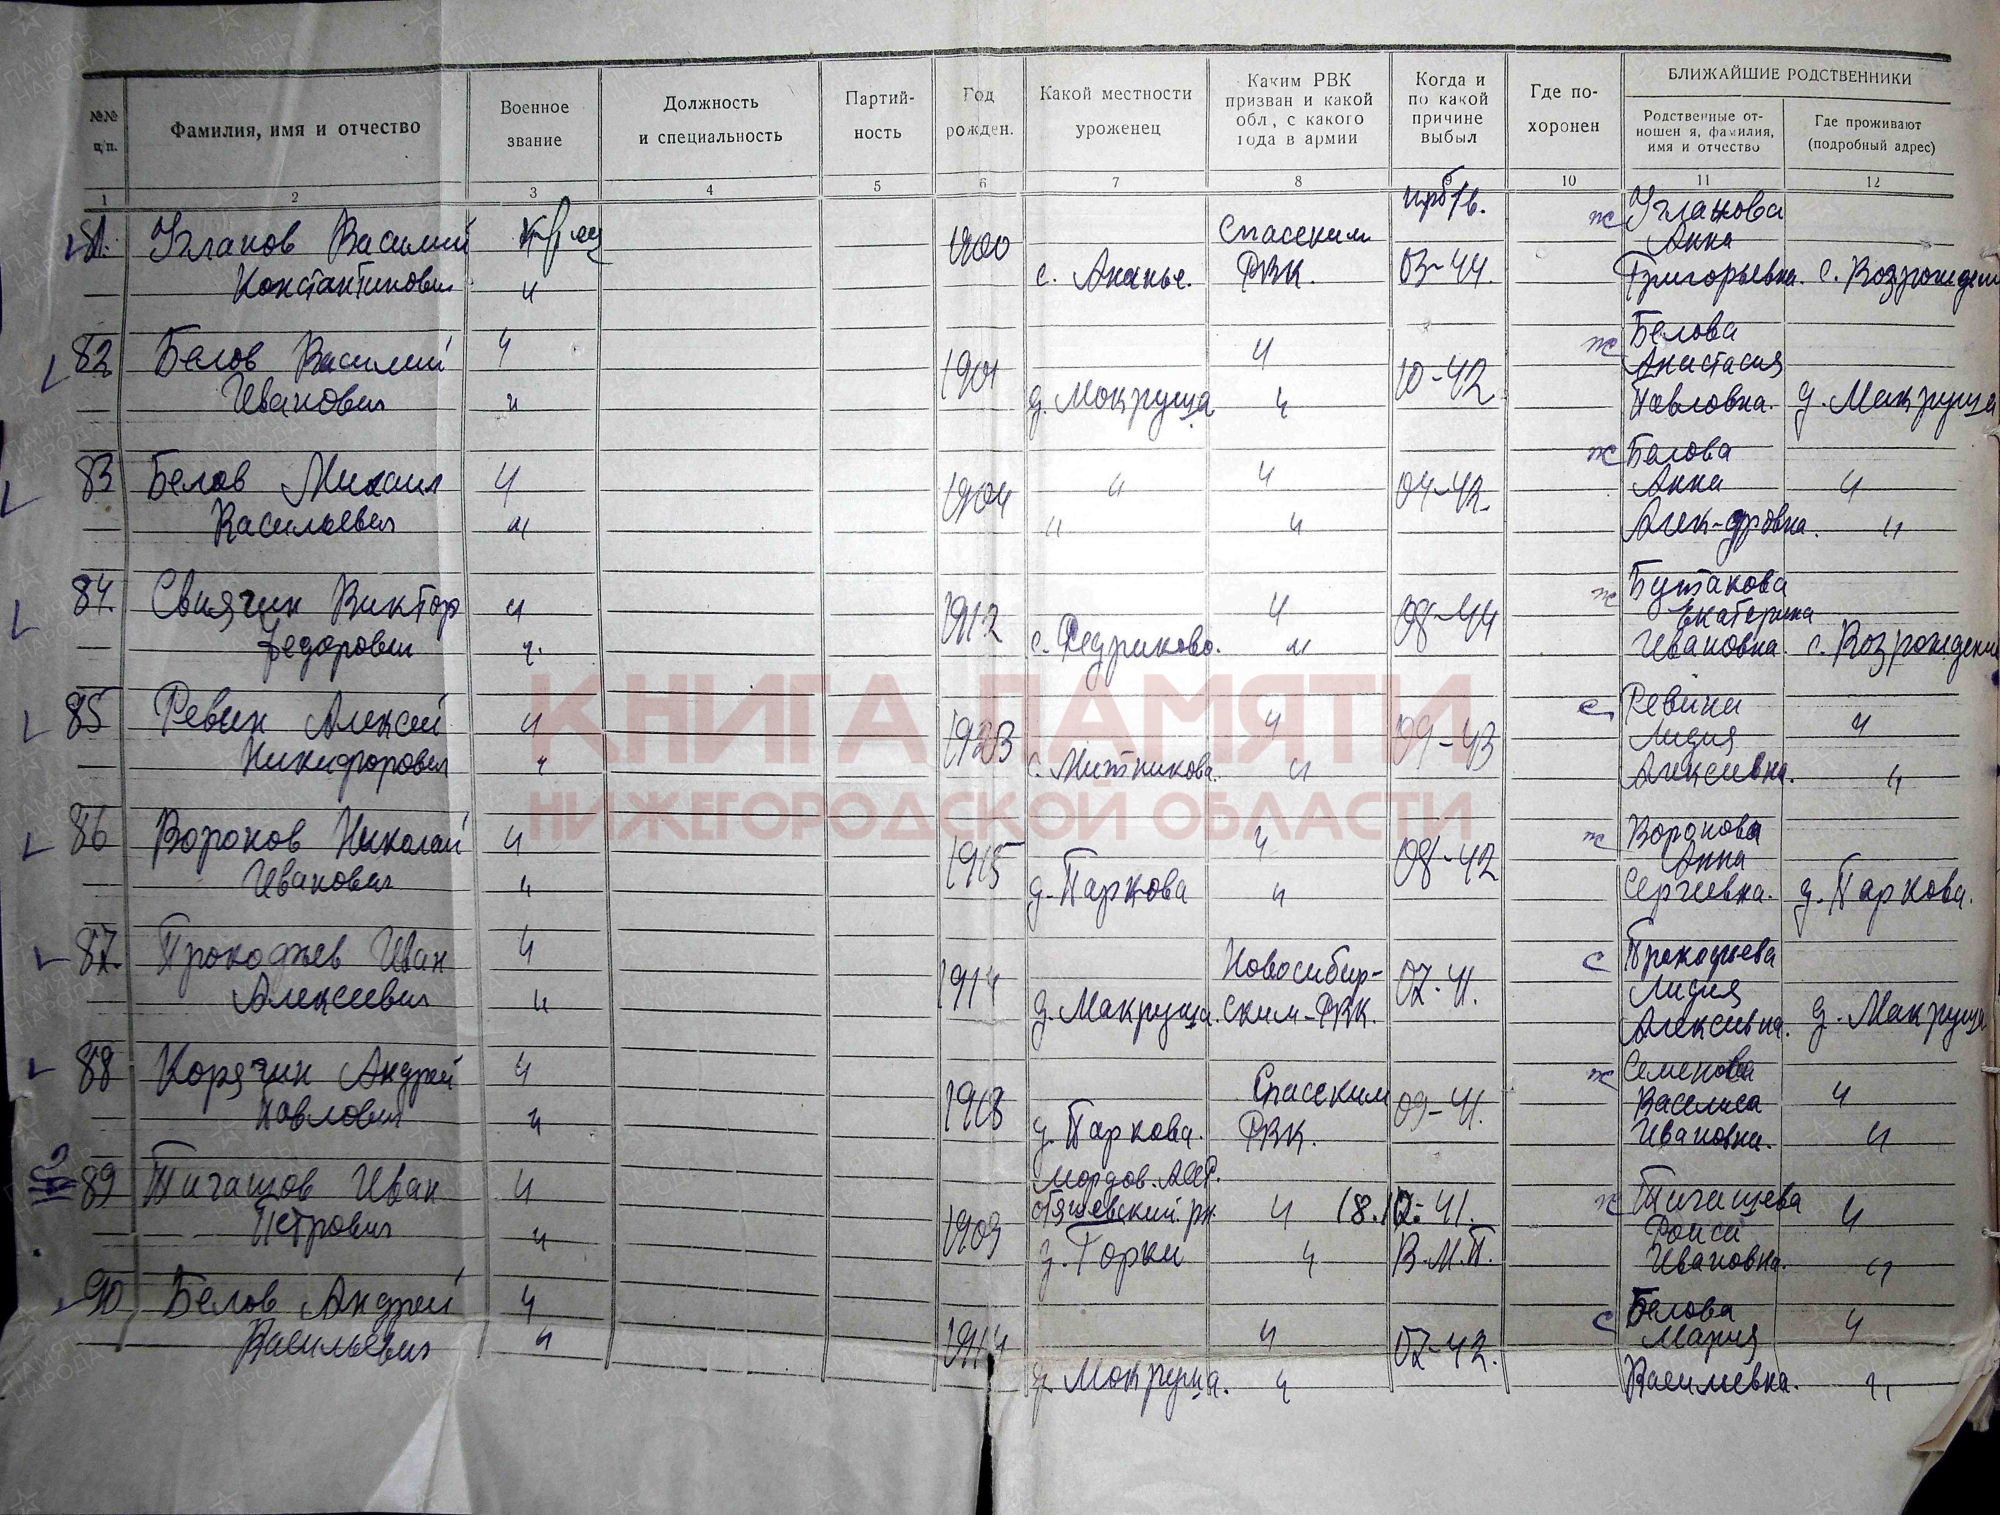 №№ ц/п.
Фамилия, имя и отчество
Военное звание
Должность и специальность
Партий-ность
Год рожден.
Какой местности уроженец
Каким РВК призван и какой обл., с какого года в армии
Когда и по какой причине выбыл
Где по-хоронен
БЛИЖАЙШИЕ РОДСТВЕННИКИ
Родственные от-ношен я, фамилия, имя и отчество
Где проживают (подробный адрес)
1 2 3 4 5 6 7 8 9 10 11 12
81. Угланов Василий 1900 Спасским ж Угланова
Анна
Константинович " с. Ананье. РВК. 03-44. Григорьевна. с. Возрожден
82 Белов Василий " 1901 " 10-42 ж Белова
Анастасия
Иванович " д. Мокруша " Павловна. д. Макруша
83 Белов Михаил " 1904 " " 04-42. ж Балова
Анна "
Васильевич " " " Алек-дровна. "
84. Свиягин Виктор " 1912 " 08-44 ж Бутакова
Екатерина
Федорович " с. Федриково. " Ивановна. с. Возрождени
85 Ревин Алексей " " 09-43 с Ревини
Лидия "
Никифорович " с. Митникова. " Алексеевна. "
86 Воронов Николай " 1915 " 08-42 ж Воронова
Анна
Иванович " д. Паркова " Сергеевна. д. Паркова.
87. Прокофьев Иван " 1914 Новосибир- 07-41. с Прокофьева
Лидия
Алексеевич " д. Макруша. ским-РВК. Алексеевна. д. Макруша
88 Корягин Андрей " 1908 Спасским 09-41. ж Семенова
Василиса "
Павлович " д. Паркова. РВК. Ивановна. "
89 Тигашов Иван " 1909 Мордов. АССР. " 18.12.41. ж Тигашева "
Петрович " д. Горки " В.М.П. Ивановна. "
90 Белов Андрей " 1914 " 07-42. с Белова
Мария "
Васильевич " д. Мокруша. " Васильевна. "
КНИГА ПАМЯТИ
НИЖЕГОРОДСКОЙ ОБЛАСТИ
ПАМЯТЬ НАРОДА